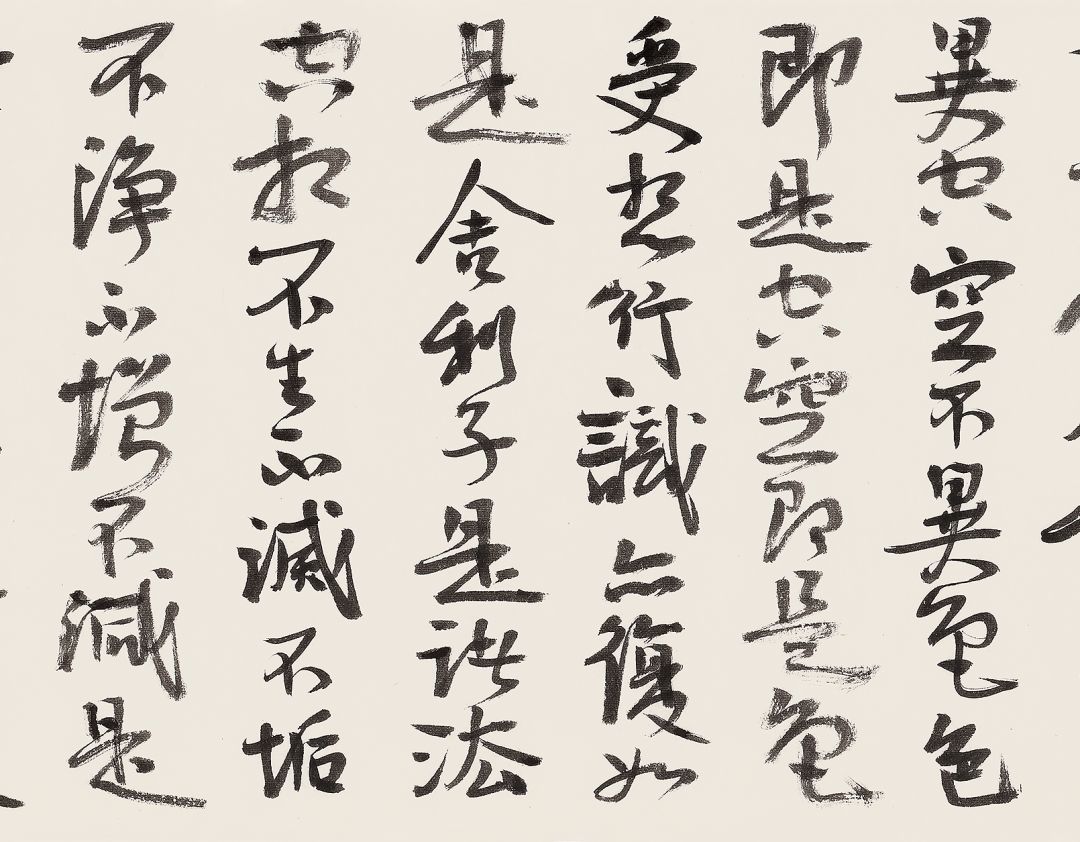 異空空不異色色
即是空空即是色
受想行識亦復如
是舍利子是諸法
空相不生不滅不垢
不淨不增不減是